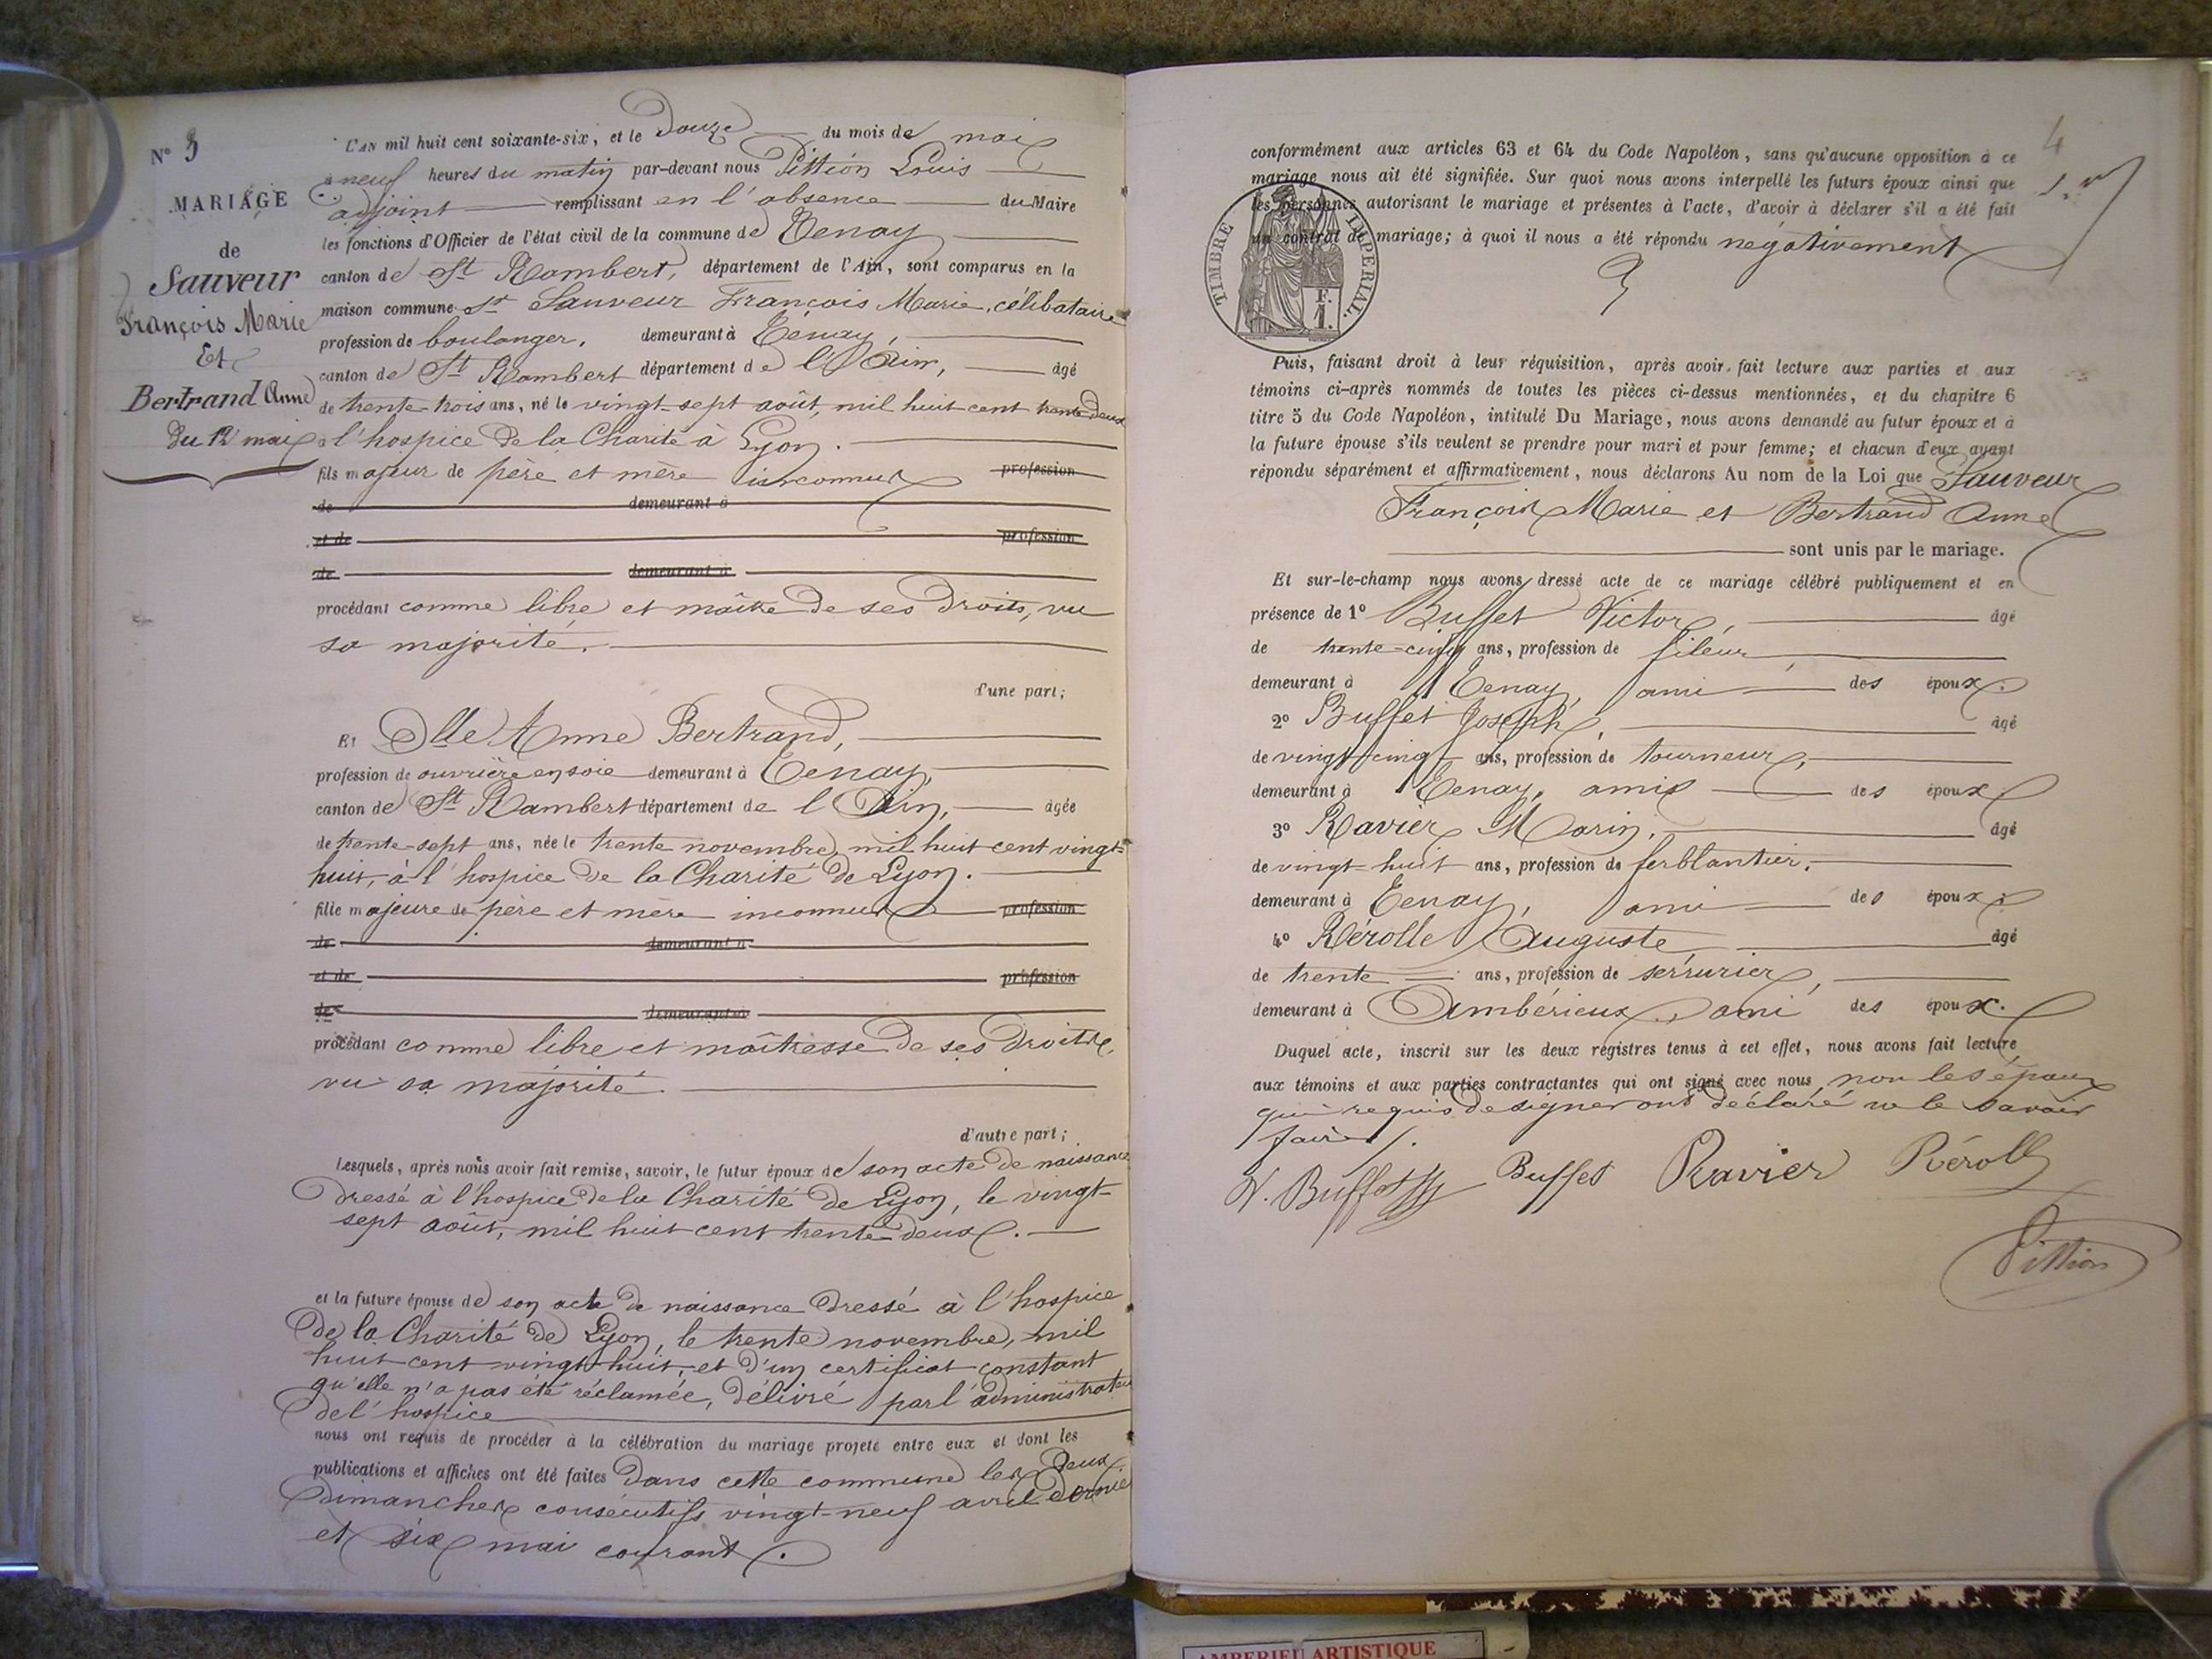 N° 3
MARIAGE
de
Sauveur
François Marie
Et
Bertrand Anne
Du 12 mai
L'AN mil huit cent soixante-six, et le Douze du mois de mai
à neuf heures du matin par-devant nous Pittion Louis
adjoint remplissant en l'absence du Maire
les fonctions d'Officier de l'état civil de la commune de Tenay
canton de St Rambert, département de l'Ain, sont comparus en la
maison commune Sr Sauveur François Marie, célibataire
profession de boulanger, demeurant à Tenay,
canton de St Rambert département de l'Ain, âgé
de trente-trois ans, né le vingt-sept août, mil huit cent trente deux
à l'hospice de la Charité à Lyon.
fils majeur de père et mère inconnus profession
de demeurant à
et de profession
de demeurant à
procédant comme libre et maître de ses droits, vu
sa majorité.
d'une part;
Et Dlle Anne Bertrand,
profession de ouvrière en soie demeurant à Tenay,
canton de St Rambert département de l'Ain, âgée
de trente-sept ans, née le trente novembre, mil huit cent vingt-
huit, à l'hospice de la Charité de Lyon.
fille majeure de père et mère inconnus profession
de demeurant à
et de profession
de demeurant à
procédant comme libre et maîtresse de ses droits,
vu sa majorité.
d'autre part;
Lesquels, après nous avoir fait remise, savoir, le futur époux de son acte de naissance
dressé à l'hospice de la Charité de Lyon, le vingt-
sept août, mil huit cent trente-deux.
et la future épouse de son acte de naissance dressé à l'hospice
de la Charité de Lyon, le trente novembre, mil
huit cent vingt-huit, et d'un certificat constant
qu'elle n'a pas été réclamée, délivré par l'administrateur
de l'hospice
nous ont requis de procéder à la célébration du mariage projeté entre eux et dont les
publications et affiches ont été faites dans cette commune les deux
dimanches consécutifs vingt-neuf avril dernier
et six mai courant.
4
conformément aux articles 63 et 64 du Code Napoléon, sans qu'aucune opposition à ce
mariage nous ait été signifiée. Sur quoi nous avons interpellé les futurs époux ainsi que
les personnes autorisant le mariage et présentes à l'acte, d'avoir à déclarer s'il a été fait
un contrat de mariage; à quoi il nous a été répondu négativement
TIMBRE IMPERIAL.
F.
1.
Puis, faisant droit à leur réquisition, après avoir fait lecture aux parties et aux
témoins ci-après nommés de toutes les pièces ci-dessus mentionnées, et du chapitre 6
titre 5 du Code Napoléon, intitulé Du Mariage, nous avons demandé au futur époux et à
la future épouse s'ils veulent se prendre pour mari et pour femme; et chacun d'eux ayant
répondu séparément et affirmativement, nous déclarons Au nom de la Loi que Sauveur
François Marie et Bertrand Anne
sont unis par le mariage.
Et sur-le-champ nous avons dressé acte de ce mariage célébré publiquement et en
présence de 1° Buffet Victor, âgé
de trente-cinq ans, profession de fileur,
demeurant à Tenay, ami des époux.
2° Buffet Joseph, âgé
de vingt-cinq ans, profession de tourneur,
demeurant à Tenay, ami des époux.
3° Ravier Marin, âgé
de vingt-huit ans, profession de ferblantier,
demeurant à Tenay, ami des époux.
4° Rérolle Auguste, âgé
de trente ans, profession de serrurier,
demeurant à Ambérieux, ami des époux.
Duquel acte, inscrit sur les deux registres tenus à cet effet, nous avons fait lecture
aux témoins et aux parties contractantes qui ont signé avec nous, non les époux
qui requis de signer ont déclaré ne le savoir
faire.
V. Buffet Buffet Ravier Rérolle
Pittion
AMBERIEU ARTISTIQUE